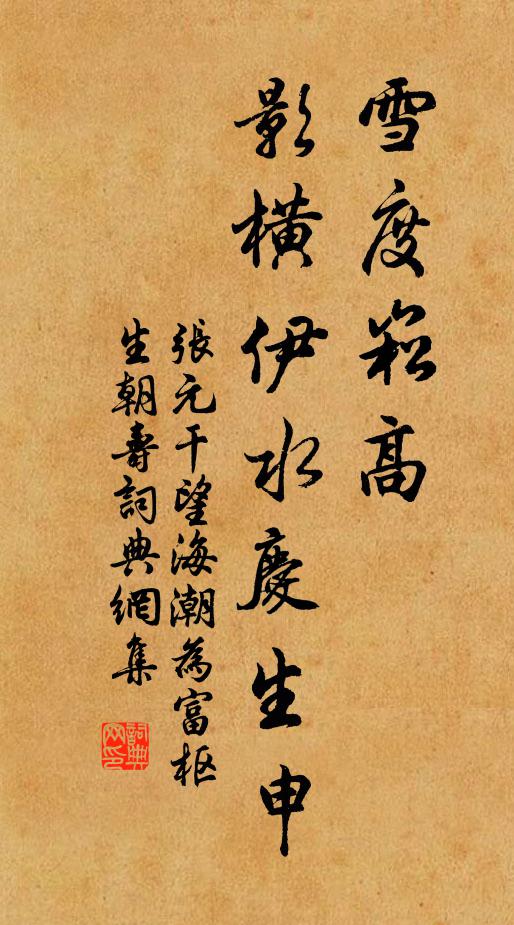 雪度崧高
影橫伊水慶生申
張元干望海潮為富枢
生朝壽詞典網集
詞典网印